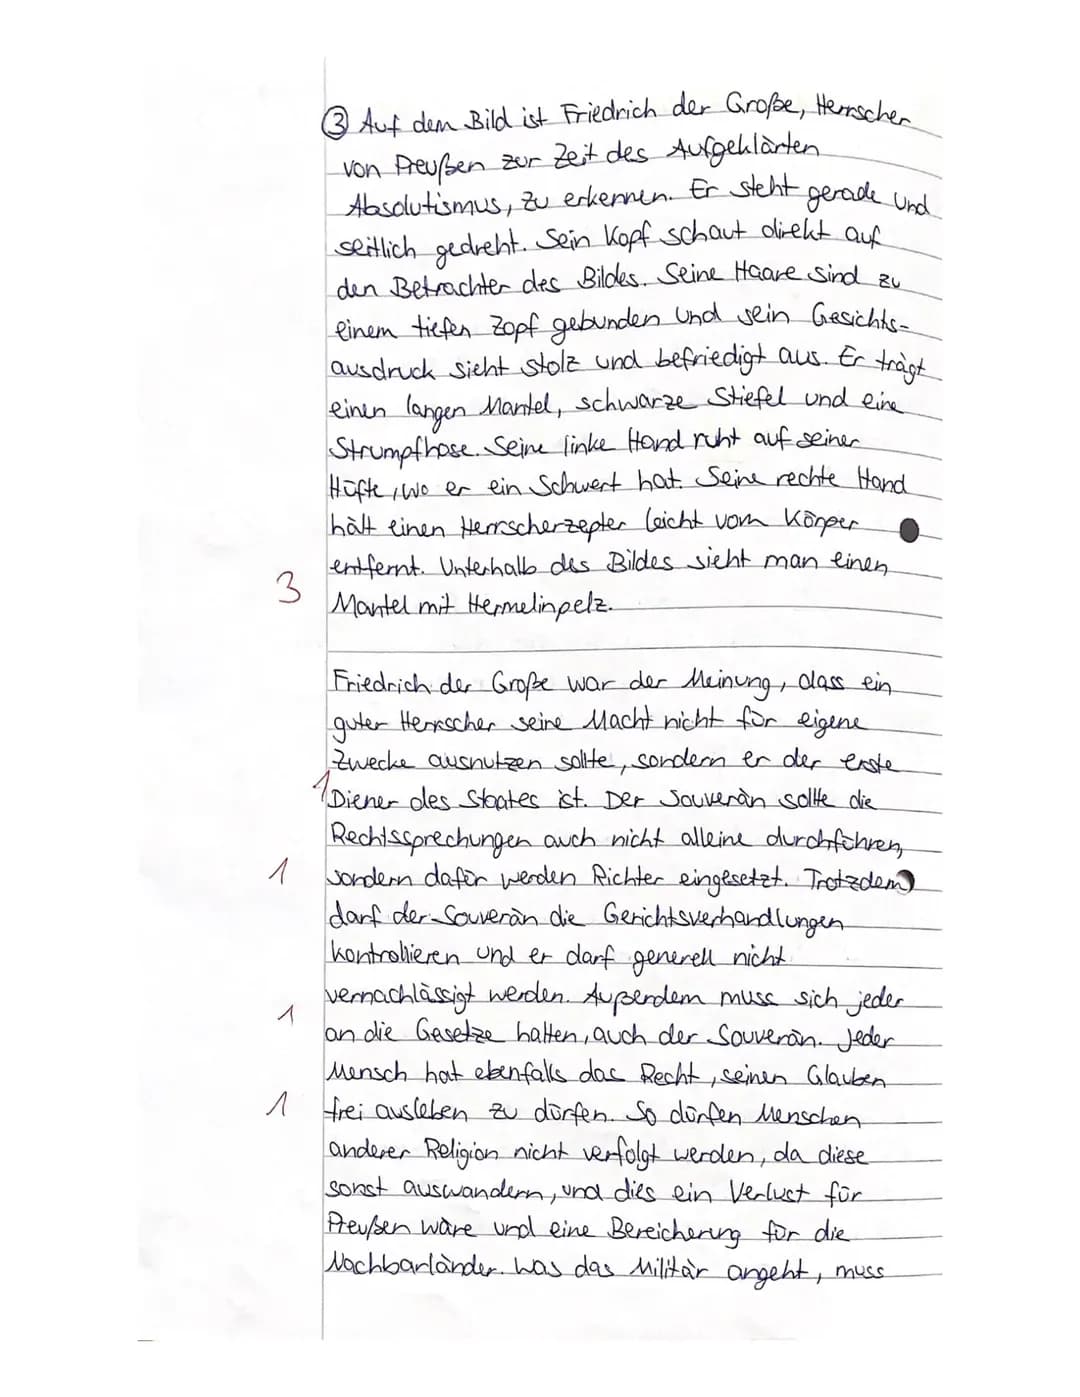 ③ Auf dem Bild ist Friedrich der Große, Herrscher
von Preußen zur Zeit des Aufgeklärten
Absolutismus, zu erkennen. Er steht gerade und
seitlich gedreht. Sein Kopf schaut direkt auf
den Betrachter des Bildes. Seine Haare sind zu
einem tiefen Zopf gebunden und sein Gesichts-
ausdruck sieht stolz und befriedigt aus. Er trägt
einen langen Mantel, schwarze Stiefel und eine
Strumpfhose. Seine linke Hand ruht auf seiner
Hüfte, wo er ein Schwert hat. Seine rechte Hand
hält einen Herrscherzepter leicht vom Körper
entfernt. Unterhalb des Bildes sieht man einen
3 Mantel mit Hermelinpelz.
Friedrich der Große war der Meinung, dass ein
guter Herrscher seine Macht nicht für eigene
Zwecke ausnutzen sollte, sondern er der erste
1 Diener des Staates ist. Der Souverän sollte die
Rechtssprechungen auch nicht alleine durchführen,
1 sondern dafür werden Richter eingesetzt. Trotzdem
darf der Souverän die Gerichtsverhandlungen
kontrollieren und er darf generell nicht
vernachlässigt werden. Außerdem muss sich jeder
1 an die Gesetze halten, auch der Souverän. Jeder
Mensch hat ebenfalls das Recht, seinen Glauben
1 frei ausleben zu dürfen. So dürfen Menschen
anderer Religion nicht verfolgt werden, da diese
sonst auswandern, und dies ein Verlust für
Preußen wäre und eine Bereicherung für die
Nachbarländer. Was das Militär angeht, muss